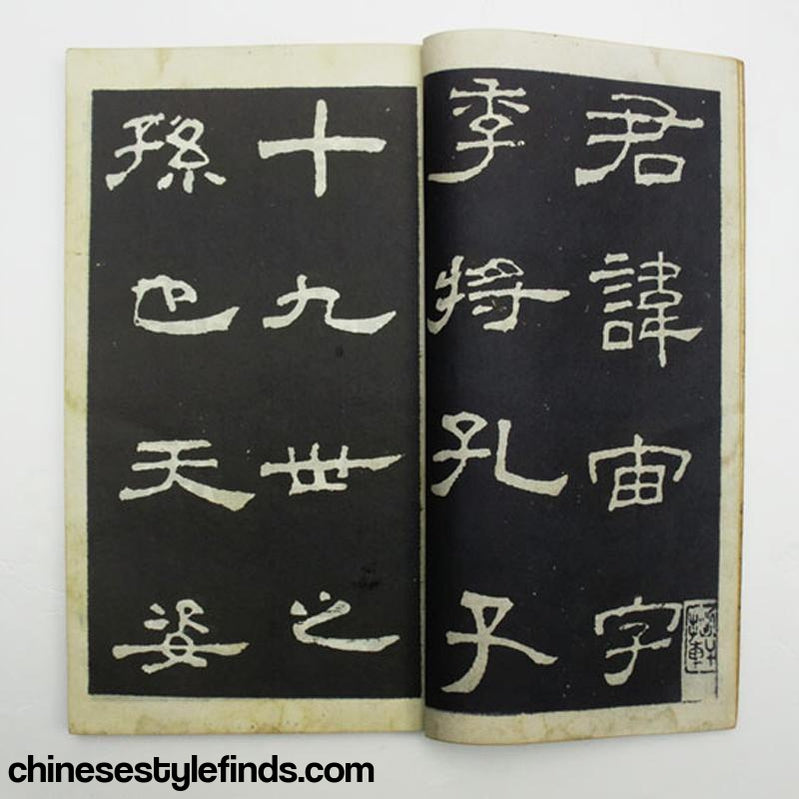 君諱宙字
季將孔子
十九世之
孫也天姿
chinesestylefinds.com